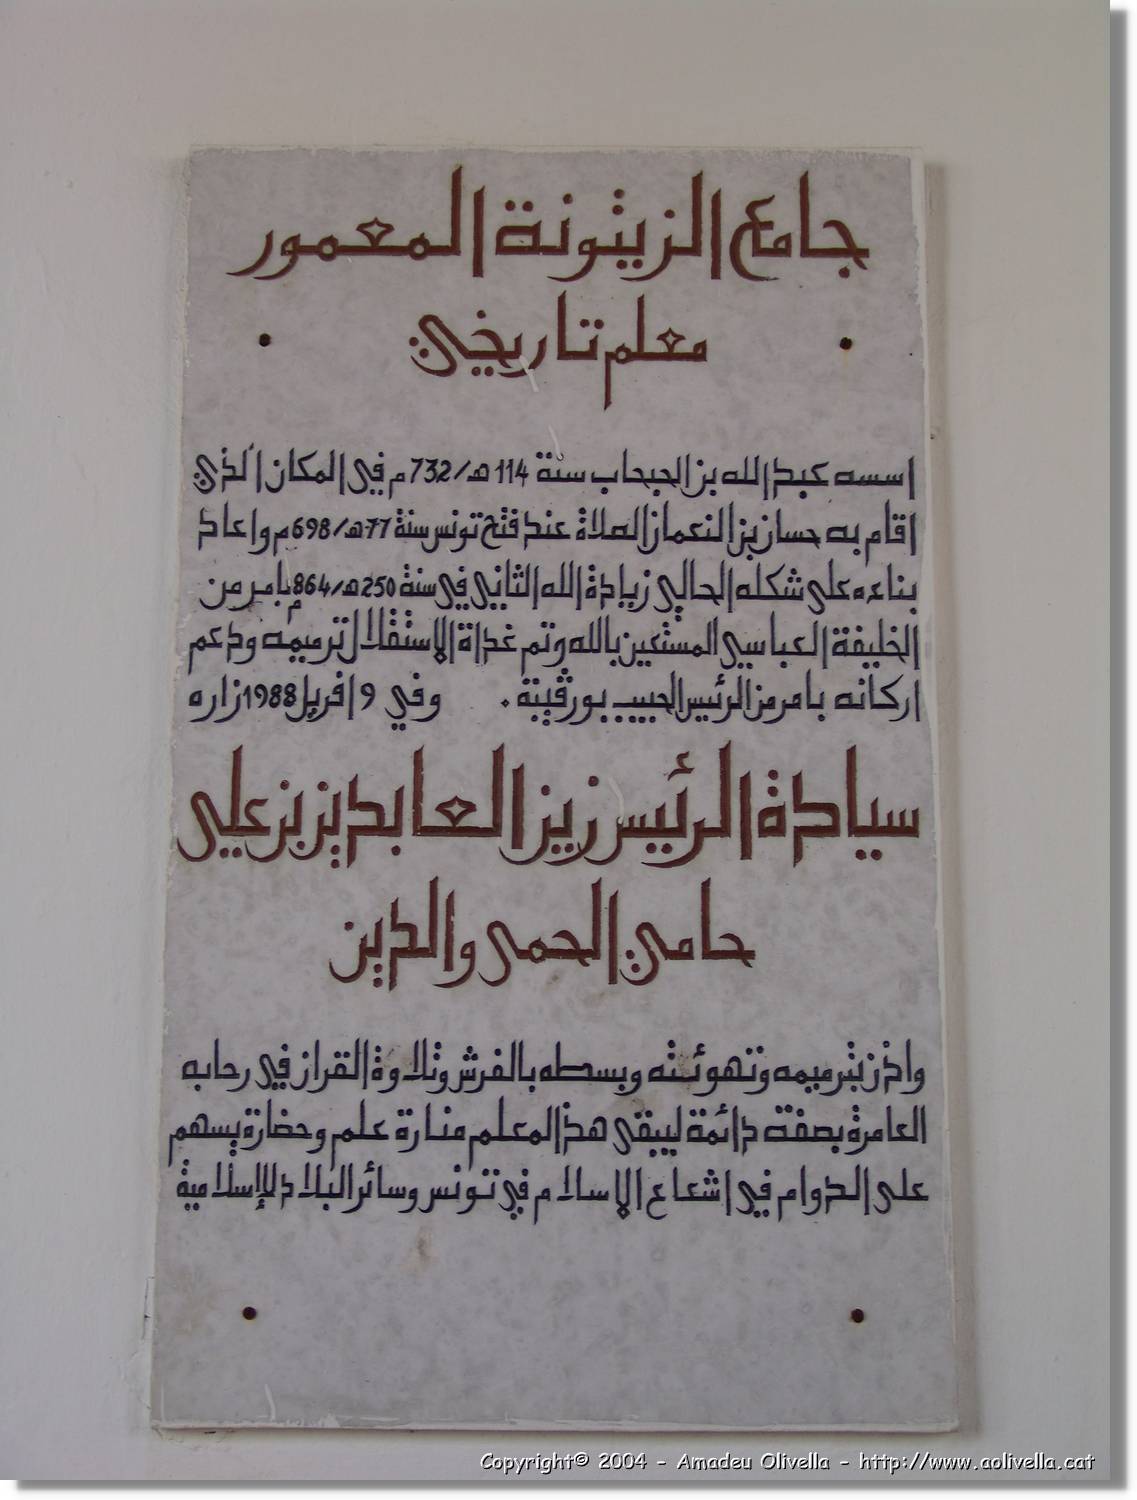 جامع الزيتونة المعمور
معلم تاريخي
اسسه عبد الله بن الحبحاب سنة 114 هـ/732 م في المكان الذي
اقام به حسان بن النعمان الصلاة عند فتح تونس سنة 77هـ/698م واعاد
بناءه على شكله الحالي زيادة الله الثاني في سنة 250هـ/864م بامر من
الخليفة العباسي المستعين بالله وتم غداة الاستقلال ترميمه ودعم
اركانه بامر من الرئيس الحبيب بورقيبة . وفي 9 افريل 1988 زاره
سيادة الرئيس زين العابدين بن علي
حامي الحمى والدين
واذن بترميمه وتهوئته وبسطه بالفرش وتلاوة القران في رحابه
العامرة بصفة دائمة ليبقى هذا المعلم منارة علم وحضارة يسهم
على الدوام في اشعاع الاسلام في تونس وسائر البلاد الإسلامية
Copyright© 2004 - Amadeu Olivella - http://www.aolivella.cat